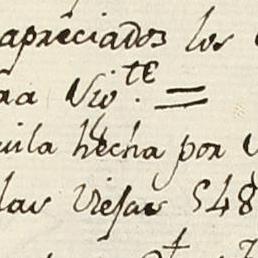 apreciados los
ra Vio.te =
uila hecha por
las Viejas 548